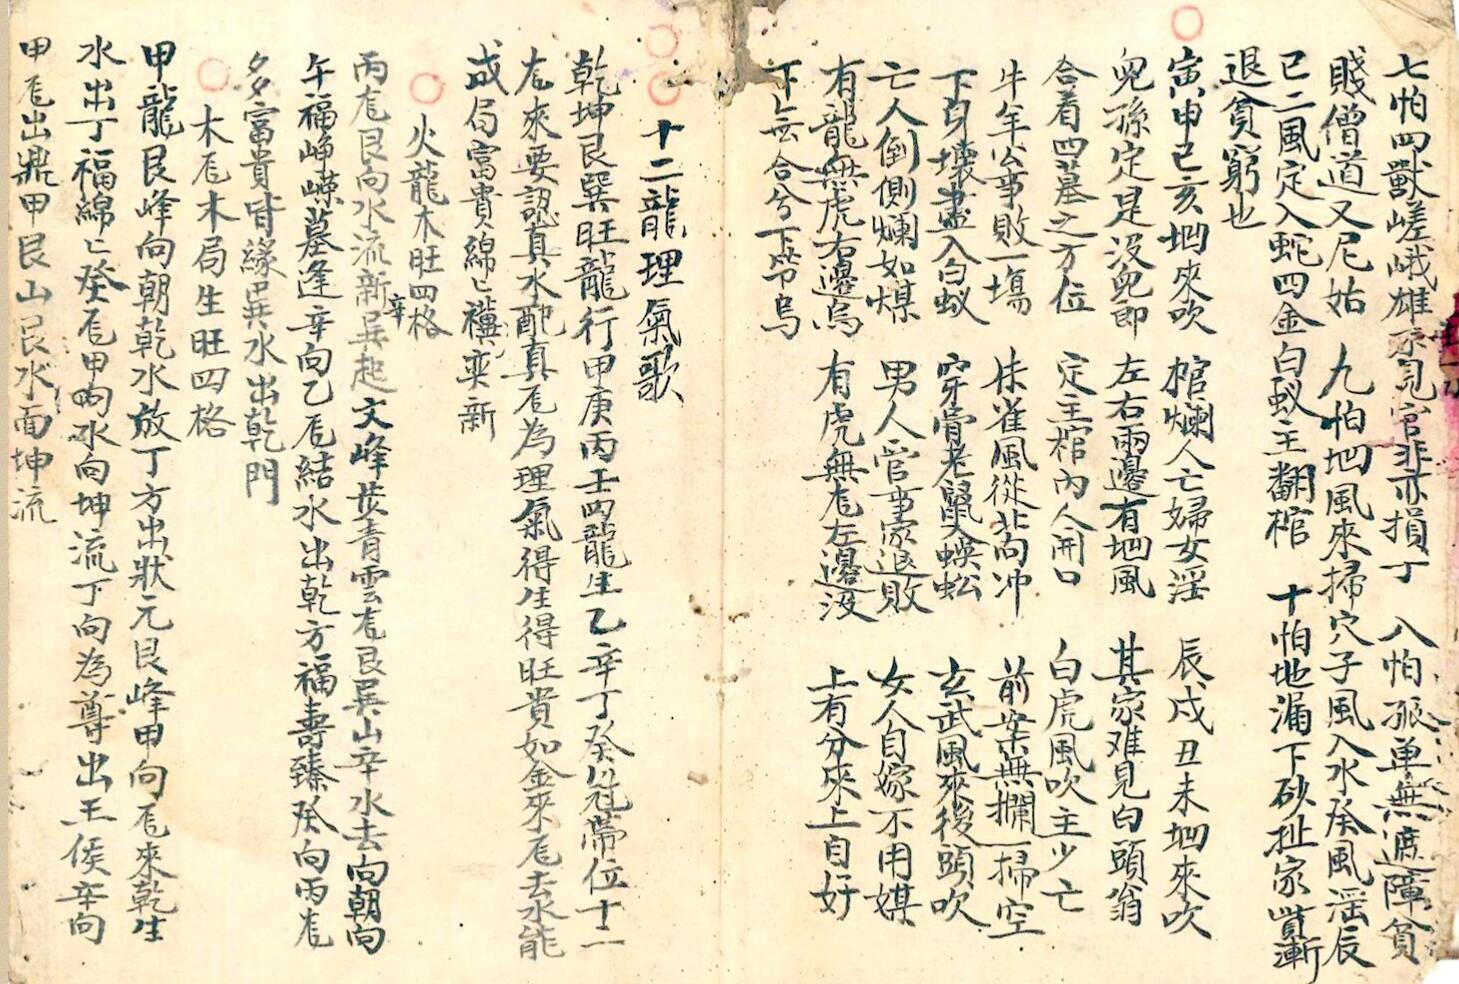 七怕四獸嵯峨雄 尔見官非亦損丁 八怕孤单無遮障貧
賤僧道又尼姑 九怕㘫風來掃穴子風入水癸風滛辰
巳二風定入蛇四金白蚁主翻棺 十怕地漏下砂扯家貲漸
退貧窮也
寅申巳亥㘫來吹 棺爛人亡婦女淫 辰戍丑未㘫來吹
兒孫定是没兒郎 左右兩邊有㘫風 其家难見白頭翁
合着四墓之方位 定主棺內人開口 白虎風吹主少亡
牛羊公事敗一塲 朱雀風從北向冲 前案無攔一掃空
下臼壊盡入白蚁 穿骨老鼠入蜈蚣 玄武風來後頭吹
亡人倒側爛如煤 男人官事家退敗 女人自嫁不用媒
有龍無虎右邊烏 有虎無龙左邊没 上有分來上自好
下無合兮下局烏
十二龍理氣歌
乾坤艮巽旺龍行 甲庚丙壬四龍生 乙辛丁癸冠帶位 十二
龙來要認真水配真龙為理氣得生得旺貴如金來龙去水能
成局富貴綿匕襀奕新
火龍木旺四格
丙龙艮向水流新巽起文峰步青雲龙艮巽山辛水去向朝向
辛
午福峥嶸墓逢辛向乙龙結水出乾方福壽臻癸向丙龙
多富貴皆緣巽水出乾門
木龙木局生旺四格
甲龍艮峰向朝乾水放丁方出狀元艮峰甲向龙來乾生
水出丁福綿匕癸龙甲向水向坤流丁向為尊出王侯辛向
甲龙出鼎甲艮山艮水面坤流